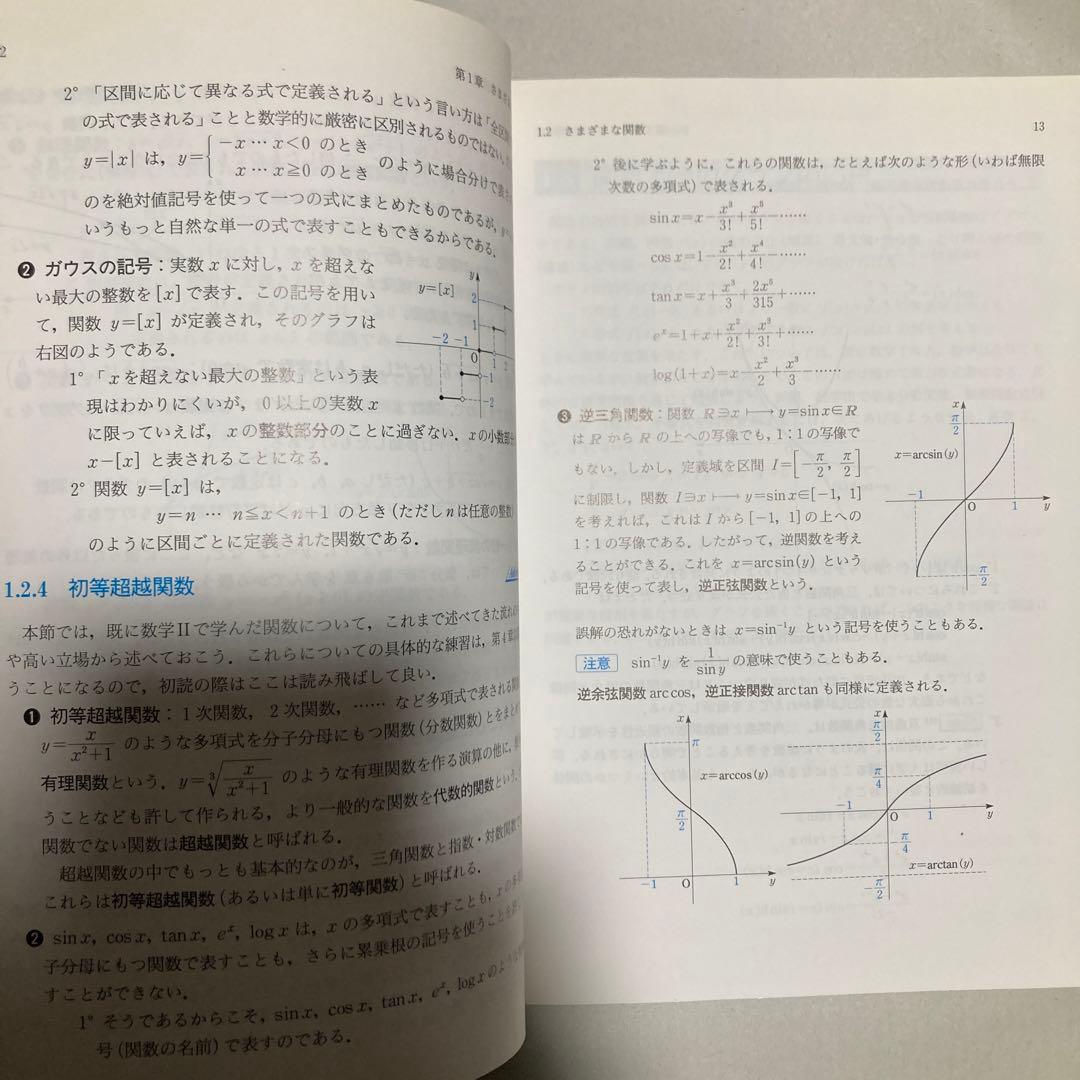 2
第1章 さま
2°「区間に応じて異なる式で定義される」という言い方は「全区
の式で表される」ことと数学的に厳密に区別されるものではない.
y=|x| は, y={ −x … x<0 のとき
x … x≧0 のとき のように場合分けで表
のを絶対値記号を使って一つの式にまとめたものであるが,
いうもっと自然な単一の式で表すこともできるからである.
❷ ガウスの記号：実数 x に対し, x を超えな
い最大の整数を [x] で表す. この記号を用い
て, 関数 y=[x] が定義され, そのグラフは
右図のようである.
y
y=[x]
2
1
−2 −1
0
1 2
−1
−2
1°「x を超えない最大の整数」という表
現はわかりにくいが, 0 以上の実数 x
に限っていえば, x の整数部分のことに過ぎない. x の小数部分
x−[x] と表されることになる.
2° 関数 y=[x] は,
y=n … n≦x<n+1 のとき (ただし n は任意の整数)
のように区間ごとに定義された関数である.
1.2.4 初等超越関数
本節では, 既に数学Ⅱで学んだ関数について, これまで述べてきた流れ
や高い立場から述べておこう. これらについての具体的な練習は, 第4章
うことになるので, 初読の際はここは読み飛ばして良い.
❶ 初等超越関数：1次関数, 2次関数, …… など多項式で表される関
y=x/(x²+1) のような多項式を分子分母にもつ関数 (分数関数) とをまと
有理関数という. y=∛(x/(x²+1)) のような有理関数を作る演算の他に,
うことなども許して作られる, より一般的な関数を代数的関数という.
関数でない関数は超越関数と呼ばれる.
超越関数の中でもっとも基本的なのが, 三角関数と指数・対数関数で
これらは初等超越関数 (あるいは単に初等関数) と呼ばれる.
❷ sin x, cos x, tan x, eˣ, log x は, x の多項式で表すことも, x の多
子分母にもつ関数で表すことも, さらに累乗根の記号を使うことを許し
すことができない.
1° そうであるからこそ, sin x, cos x, tan x, eˣ, log x のような
号 (関数の名前) で表すのである.
1.2 さまざまな関数
13
2° 後に学ぶように, これらの関数は, たとえば次のような形 (いわば無限
次数の多項式) で表される.
sin x=x−x³/3!+x⁵/5!−……
cos x=1−x²/2!+x⁴/4!−……
tan x=x+x³/3+2x⁵/315+……
eˣ=1+x+x²/2!+x³/3!+……
log(1+x)=x−x²/2+x³/3−……
❸ 逆三角関数：関数 R∋x⟼y=sin x∈R
は R から R の上への写像でも, 1:1 の写像で
もない. しかし, 定義域を区間 I=[−π/2, π/2]
に制限し, 関数 I∋x⟼y=sin x∈[−1, 1]
を考えれば, これは I から [−1, 1] の上への
1:1 の写像である. したがって, 逆関数を考え
ることができる. これを x=arcsin(y) という
記号を使って表し, 逆正弦関数という.
x
π/2
x=arcsin(y)
−1
O
1
y
−π/2
誤解の恐れがないときは x=sin⁻¹y という記号を使うこともある.
注意 sin⁻¹y を 1/sin y の意味で使うこともある.
逆余弦関数 arccos, 逆正接関数 arctan も同様に定義される.
x
π
x=arccos(y)
π/2
−1
O
1
y
x
π/2
π/4
−1
O
1
y
−π/4
x=arctan(y)
−π/2